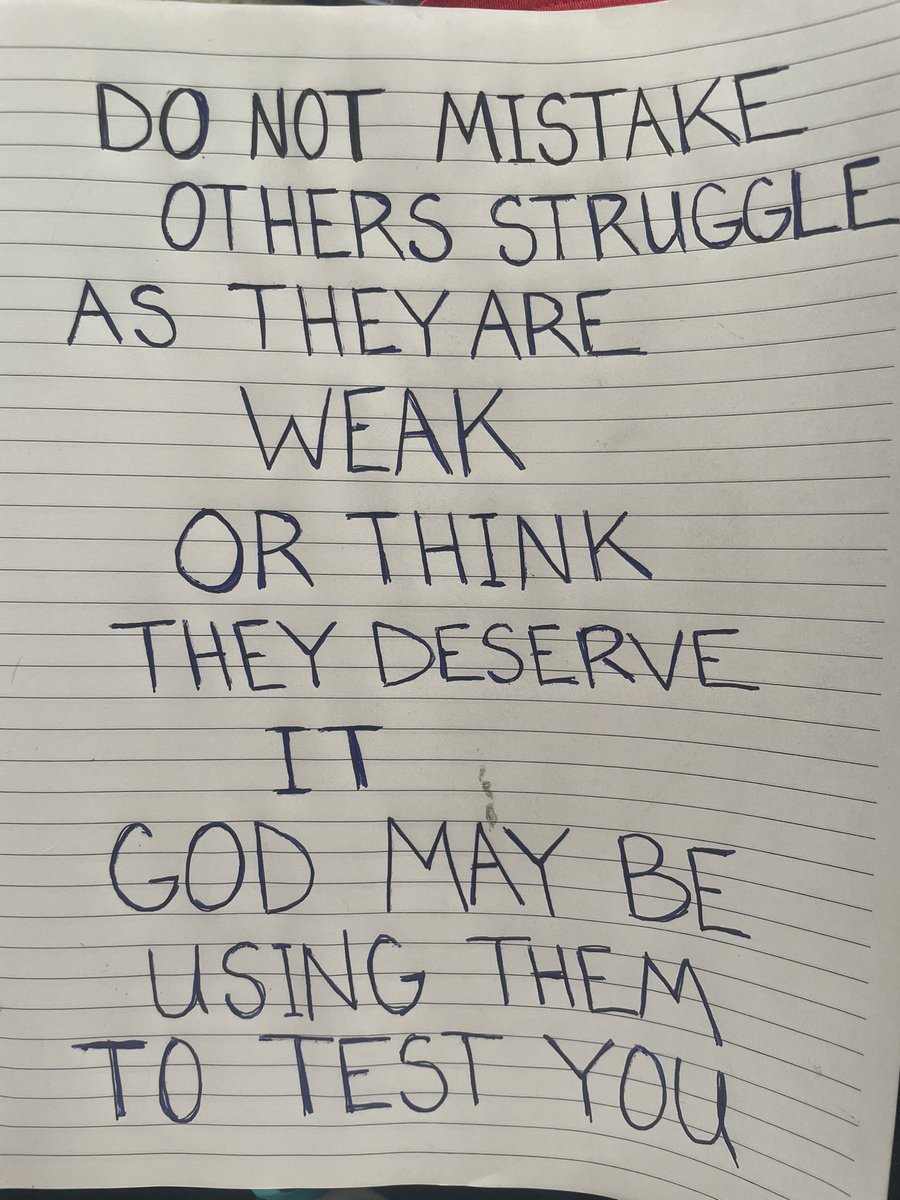 DO NOT MISTAKE
OTHERS STRUGGLE
AS THEY ARE
WEAK
OR THINK
THEY DESERVE
IT
GOD MAY BE
USING THEM
TO TEST YOU